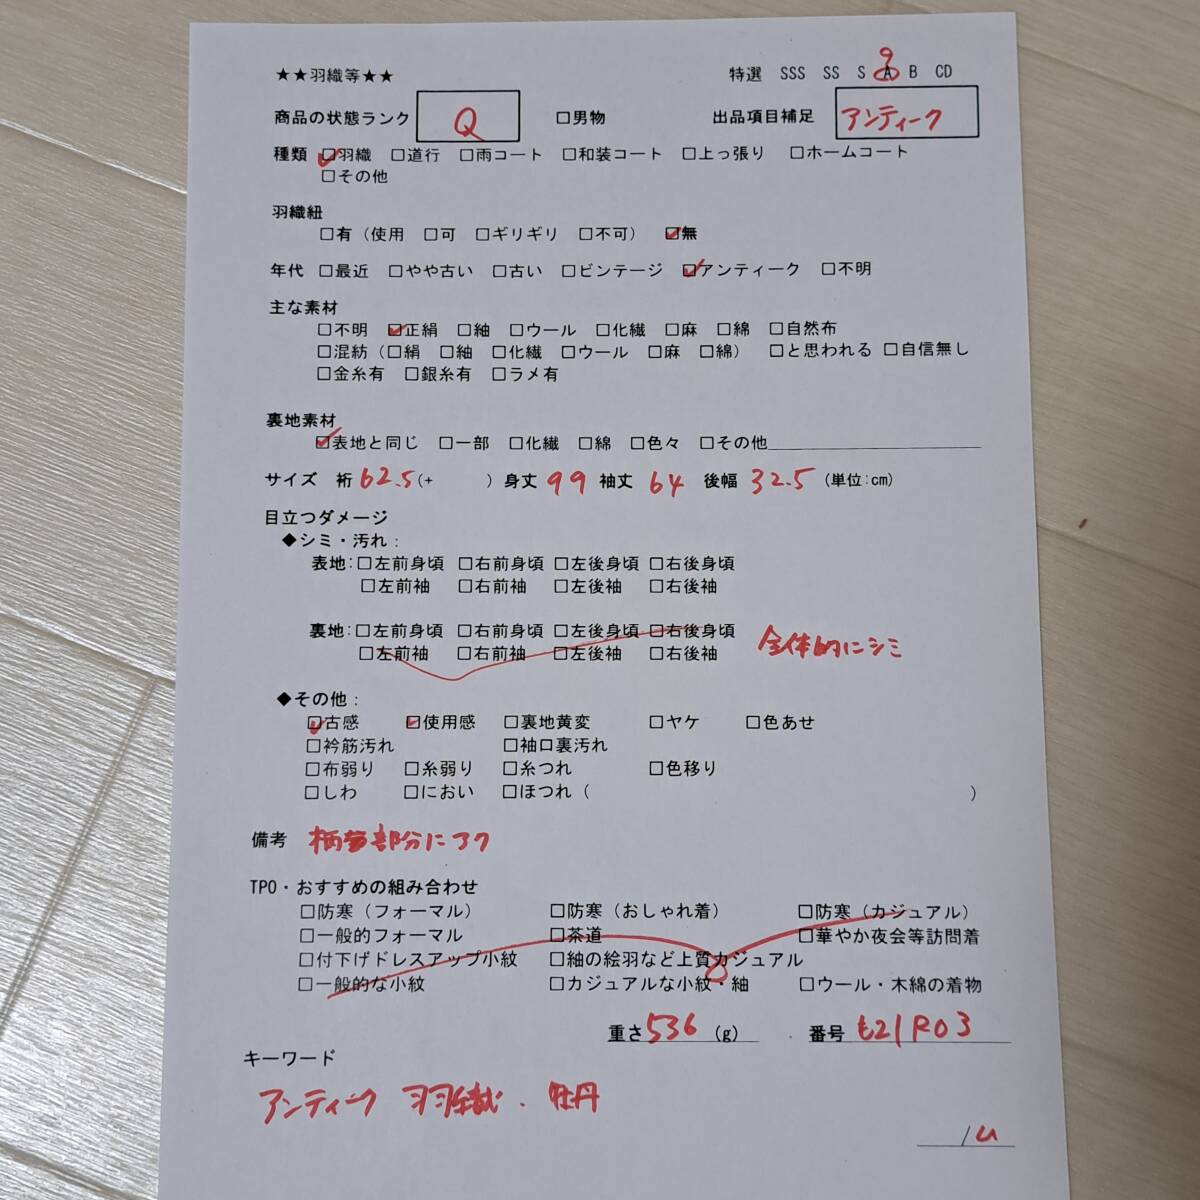 ★★羽織等★★ 特選 SSS SS S A B CD
商品の状態ランク Q □男物 出品項目補足 アンティーク
種類 ☑羽織 □道行 □雨コート □和装コート □上っ張り □ホームコート
□その他
羽織紐
□有（使用 □可 □ギリギリ □不可） ☑無
年代 □最近 □やや古い □古い □ビンテージ ☑アンティーク □不明
主な素材
□不明 ☑正絹 □紬 □ウール □化繊 □麻 □綿 □自然布
□混紡（□絹 □紬 □化繊 □ウール □麻 □綿） □と思われる □自信無し
□金糸有 □銀糸有 □ラメ有
裏地素材
☑表地と同じ □一部 □化繊 □綿 □色々 □その他
サイズ 裄 62.5(+ ) 身丈 99 袖丈 64 後幅 32.5 (単位:cm)
目立つダメージ
◆シミ・汚れ：
表地:□左前身頃 □右前身頃 □左後身頃 □右後身頃
□左前袖 □右前袖 □左後袖 □右後袖
裏地:□左前身頃 □右前身頃 □左後身頃 □右後身頃
□左前袖 □右前袖 □左後袖 □右後袖 全体的にシミ
◆その他：
☑古感 ☑使用感 □裏地黄変 □ヤケ □色あせ
□衿筋汚れ □袖口裏汚れ
□布弱り □糸弱り □糸つれ □色移り
□しわ □におい □ほつれ（ ）
備考 柄部分にアク
TPO・おすすめの組み合わせ
□防寒（フォーマル） □防寒（おしゃれ着） □防寒（カジュアル）
□一般的フォーマル □茶道 □華やか夜会等訪問着
□付下げドレスアップ小紋 □紬の絵羽など上質カジュアル
□一般的な小紋 □カジュアルな小紋・紬 □ウール・木綿の着物
重さ 536 (g) 番号 も21R03
キーワード
アンティーク 羽織．牡丹
/